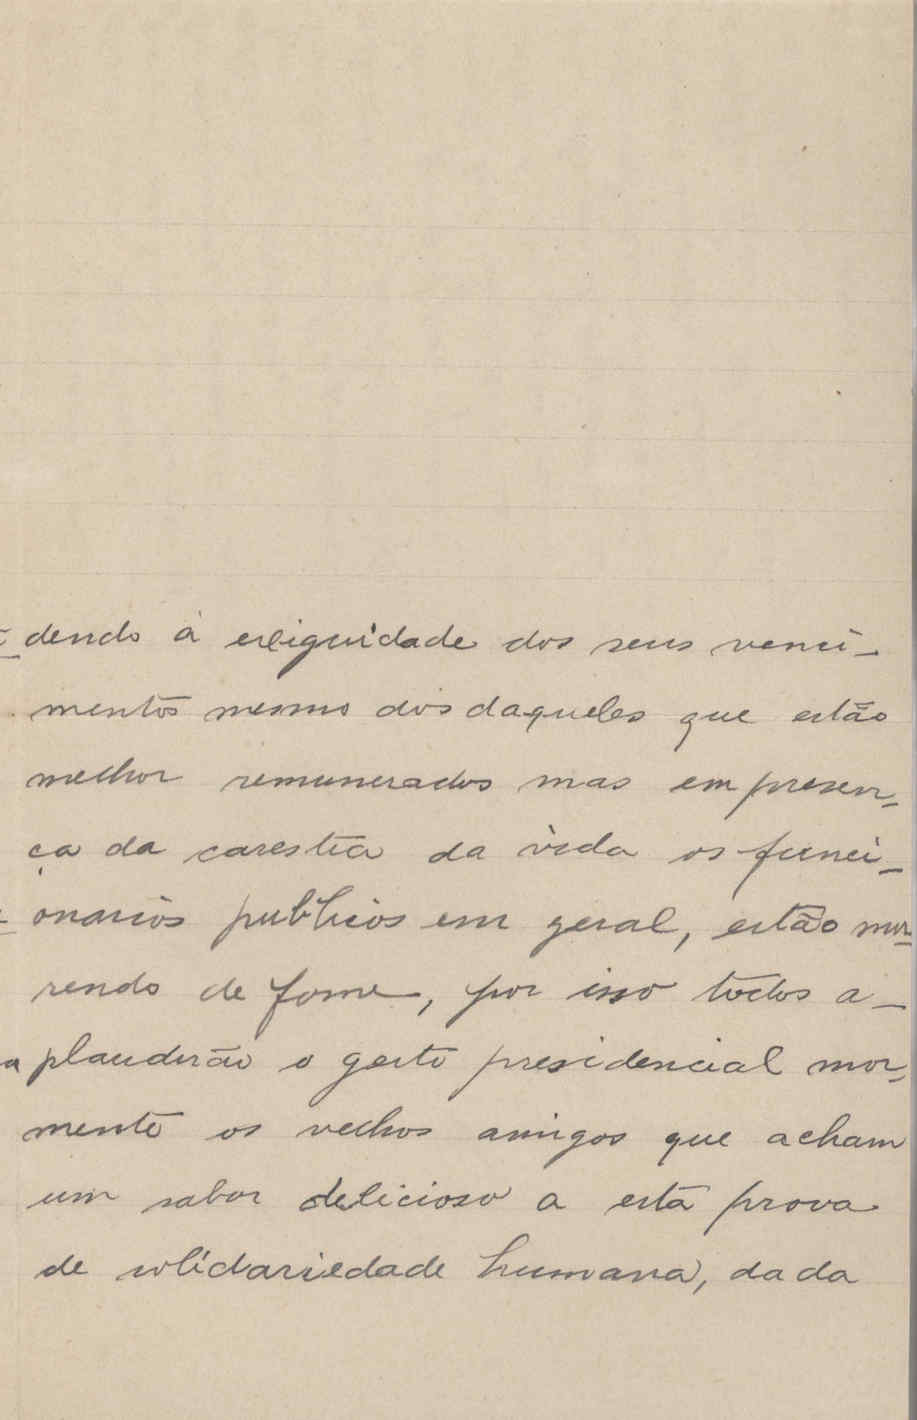 dendo á exiguidade dos seus venci-
mentos mesmo dos daqueles que estão
melhor remunerados mas em presen-
ça da carestia da vida os funci-
onarios publicos em geral, estão mor-
rendo de fome, por isso todos a-
plaudirão o gesto presidencial mor-
mente os velhos amigos que acham
um sabor delicioso a esta prova
de solidariedade humana, dada